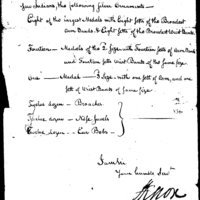 few Indians, the following silver Ornaments —
Eight of the largest Medals with Eight setts of the Broadest
Arm Bands & Eight setts of the Broadest Wrist Bands
Fourteen — Medals of the 2d Size with Fourteen setts of Arm Bands
and Fourteen setts Wrist Bands of the same size
One — Medal — 3 Size — with one sett of Arm, and one
sett of Wrist Bands of same size
Twelve dozen — Broaches
Twelve dozen — Nose Jewels
Twelve dozen — Ear Bobs
I am Sir
Your humble Servt
H Knox